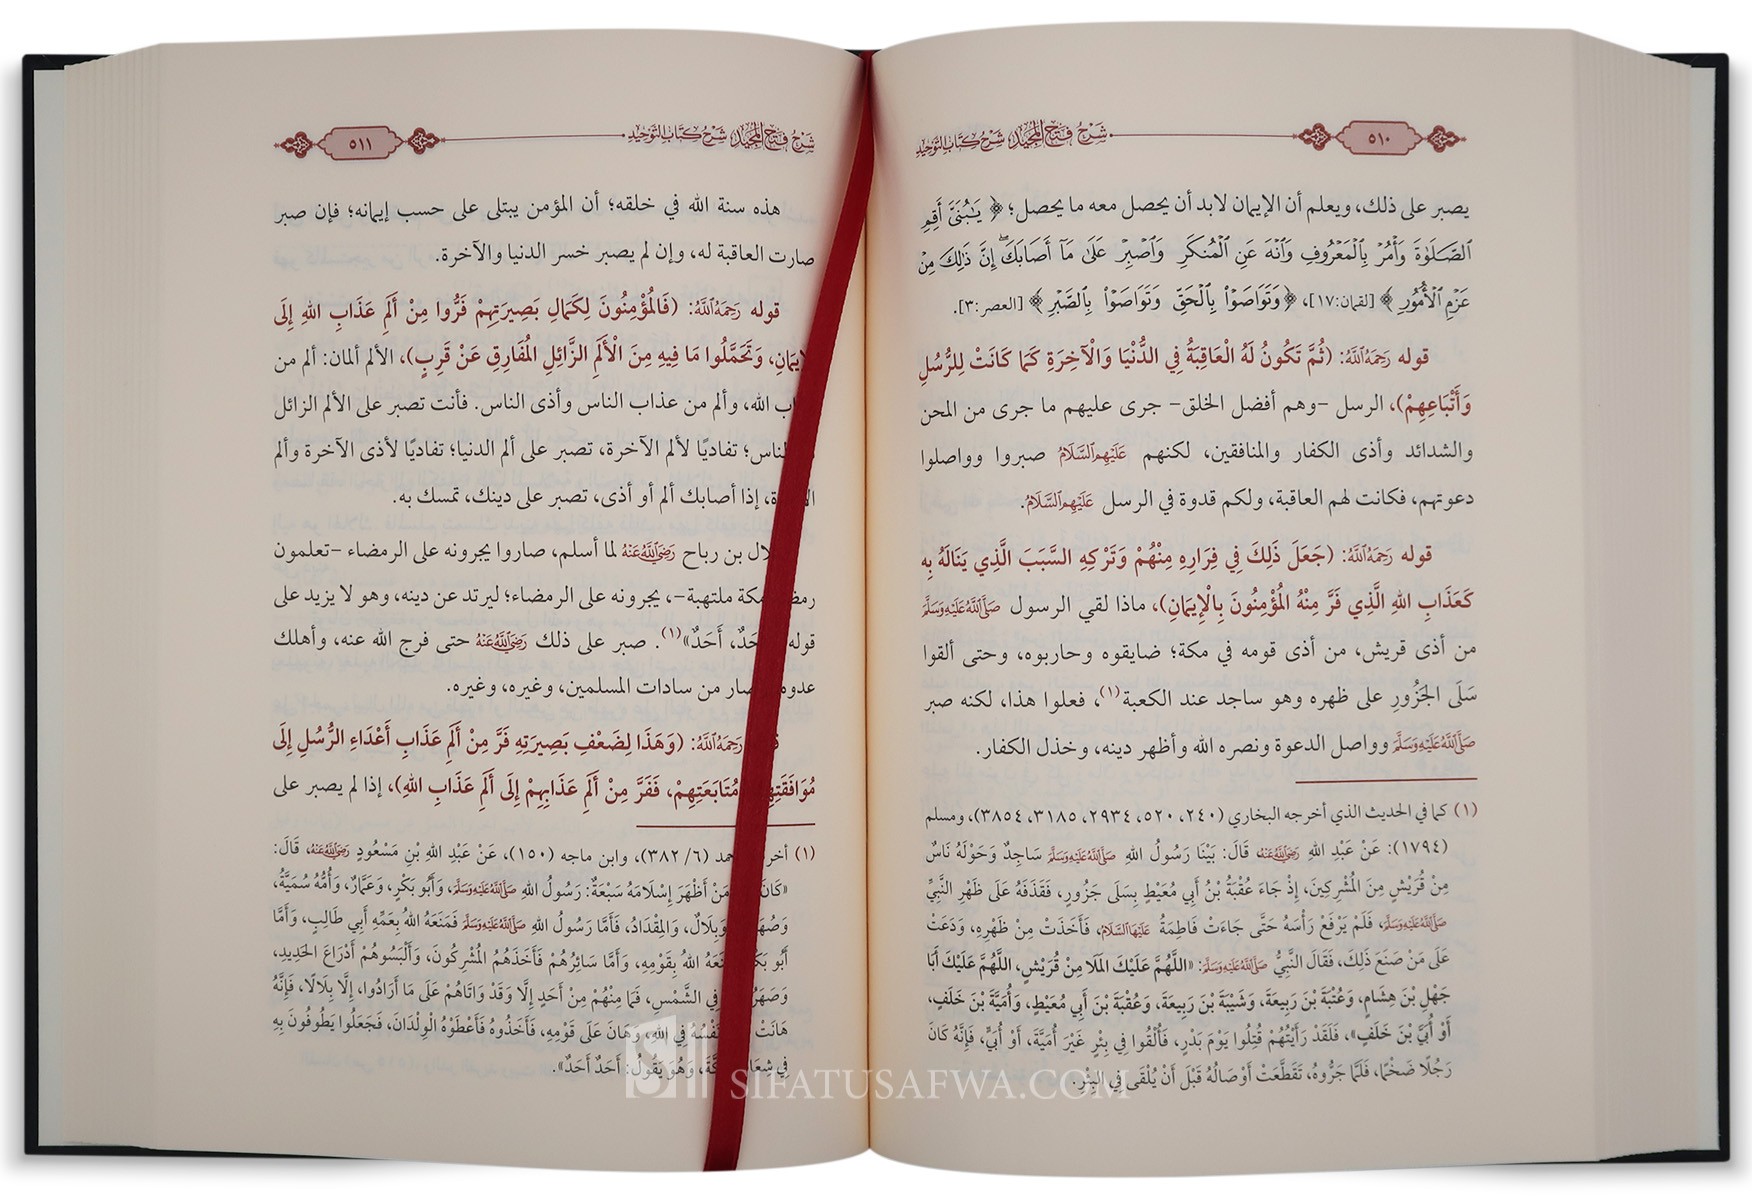 شرح فتح المجيد شرح كتاب التوحيد
٥١٠
يصبر على ذلك، ويعلم أن الإيمان لابد أن يحصل معه ما يحصل؛ ﴿ يَٰبُنَيَّ أَقِمِ
ٱلصَّلَوٰةَ وَأۡمُرۡ بِٱلۡمَعۡرُوفِ وَٱنۡهَ عَنِ ٱلۡمُنكَرِ وَٱصۡبِرۡ عَلَىٰ مَآ أَصَابَكَۖ إِنَّ ذَٰلِكَ مِنۡ
عَزۡمِ ٱلۡأُمُورِ ﴾ [لقمان:١٧]، ﴿وَتَوَاصَوۡاْ بِٱلۡحَقِّ وَتَوَاصَوۡاْ بِٱلصَّبۡرِ ﴾ [العصر:٣].
قوله رَحِمَهُ ٱللَّهُ: (ثُمَّ تَكُونُ لَهُ الْعَاقِبَةُ فِي الدُّنْيَا وَالْآخِرَةِ كَمَا كَانَتْ لِلرُّسُلِ
وَأَتْبَاعِهِمْ)، الرسل -وهم أفضل الخلق- جرى عليهم ما جرى من المحن
والشدائد وأذى الكفار والمنافقين، لكنهم عَلَيْهِمُ ٱلسَّلَامُ صبروا وواصلوا
دعوتهم، فكانت لهم العاقبة، ولكم قدوة في الرسل عَلَيْهِمُ ٱلسَّلَامُ.
قوله رَحِمَهُ ٱللَّهُ: (جَعَلَ ذَلِكَ فِي فِرَارِهِ مِنْهُمْ وَتَرْكِهِ السَّبَبَ الَّذِي يَنَالَهُ بِهِ
كَعَذَابِ اللهِ الَّذِي فَرَّ مِنْهُ المُؤْمِنُونَ بِالْإِيمَانِ)، ماذا لقي الرسول صَلَّى ٱللَّهُ عَلَيْهِ وَسَلَّمَ
من أذى قريش، من أذى قومه في مكة؛ ضايقوه وحاربوه، وحتى ألقوا
سَلَى الجَزُورِ على ظهره وهو ساجد عند الكعبة(١)، فعلوا هذا، لكنه صبر
صَلَّى ٱللَّهُ عَلَيْهِ وَسَلَّمَ وواصل الدعوة ونصره الله وأظهر دينه، وخذل الكفار.
(١) كما في الحديث الذي أخرجه البخاري (٢٤٠، ٥٢٠، ٢٩٣٤، ٣١٨٥، ٣٨٥٤)، ومسلم
(١٧٩٤): عَنْ عَبْدِ اللهِ رَضِيَ ٱللَّهُ عَنْهُ قَالَ: بَيْنَا رَسُولُ اللهِ صَلَّى ٱللَّهُ عَلَيْهِ وَسَلَّمَ سَاجِدٌ وَحَوْلَهُ نَاسٌ
مِنْ قُرَيْشٍ مِنَ المُشْرِكِينَ، إِذْ جَاءَ عُقْبَةُ بْنُ أَبِي مُعَيْطٍ بِسَلَى جَزُورٍ، فَقَذَفَهُ عَلَى ظَهْرِ النَّبِيِّ
صَلَّى ٱللَّهُ عَلَيْهِ وَسَلَّمَ، فَلَمْ يَرْفَعْ رَأْسَهُ حَتَّى جَاءَتْ فَاطِمَةُ عَلَيْهَا ٱلسَّلَامُ، فَأَخَذَتْ مِنْ ظَهْرِهِ، وَدَعَتْ
عَلَى مَنْ صَنَعَ ذَلِكَ، فَقَالَ النَّبِيُّ صَلَّى ٱللَّهُ عَلَيْهِ وَسَلَّمَ: «اللَّهُمَّ عَلَيْكَ المَلَا مِنْ قُرَيْشٍ، اللَّهُمَّ عَلَيْكَ أَبَا
جَهْلِ بْنَ هِشَامٍ، وَعُتْبَةَ بْنَ رَبِيعَةَ، وَشَيْبَةَ بْنَ رَبِيعَةَ، وَعُقْبَةَ بْنَ أَبِي مُعَيْطٍ، وَأُمَيَّةَ بْنَ خَلَفٍ،
أَوْ أُبَيَّ بْنَ خَلَفٍ»، فَلَقَدْ رَأَيْتُهُمْ قُتِلُوا يَوْمَ بَدْرٍ، فَأُلْقُوا فِي بِئْرٍ غَيْرَ أُمَيَّةَ، أَوْ أُبَيٍّ، فَإِنَّهُ كَانَ
رَجُلًا ضَخْمًا، فَلَمَّا جَرُّوهُ، تَقَطَّعَتْ أَوْصَالُهُ قَبْلَ أَنْ يُلْقَى فِي البِئْرِ.
شرح فتح المجيد شرح كتاب التوحيد
٥١١
هذه سنة الله في خلقه؛ أن المؤمن يبتلى على حسب إيمانه؛ فإن صبر
صارت العاقبة له، وإن لم يصبر خسر الدنيا والآخرة.
قوله رَحِمَهُ ٱللَّهُ: (فَالْمُؤْمِنُونَ لِكَمَالِ بَصِيرَتِهِمْ فَرُّوا مِنْ أَلَمِ عَذَابِ اللهِ إِلَى
الْإِيمَانِ، وَتَحَمَّلُوا مَا فِيهِ مِنَ الْأَلَمِ الزَّائِلِ المُفَارِقِ عَنْ قَرِبٍ)، الألم ألمان: ألم من
الله، وألم من عذاب الناس وأذى الناس. فأنت تصبر على الألم الزائل
الناس؛ تفاديًا لألم الآخرة، تصبر على ألم الدنيا؛ تفاديًا لأذى الآخرة وألم
إذا أصابك ألم أو أذى، تصبر على دينك، تمسك به.
بن رباح رَضِيَ ٱللَّهُ عَنْهُ لما أسلم، صاروا يجرونه على الرمضاء -تعلمون
مكة ملتهبة-، يجرونه على الرمضاء؛ ليرتد عن دينه، وهو لا يزيد على
قوله أَحَدٌ، أَحَدٌ»(١). صبر على ذلك رَضِيَ ٱللَّهُ عَنْهُ حتى فرج الله عنه، وأهلك
عدوه صار من سادات المسلمين، وغيره، وغيره.
رَحِمَهُ ٱللَّهُ: (وَهَذَا لِضَعْفِ بَصِيرَتِهِ فَرَّ مِنْ أَلَمِ عَذَابِ أَعْدَاءِ الرُّسُلِ إِلَى
مُوَافَقَتِهِمْ مُتَابَعَتِهِمْ، فَفَرَّ مِنْ أَلَمِ عَذَابِهِمْ إِلَى أَلَمِ عَذَابِ اللهِ)، إذا لم يصبر على
(١) (٦/ ٣٨٢)، وابن ماجه (١٥٠)، عَنْ عَبْدِ اللهِ بْنِ مَسْعُودٍ رَضِيَ ٱللَّهُ عَنْهُ، قَالَ:
«كَانَ مَنْ أَظْهَرَ إِسْلَامَهُ سَبْعَةٌ: رَسُولُ اللهِ صَلَّى ٱللَّهُ عَلَيْهِ وَسَلَّمَ، وَأَبُو بَكْرٍ، وَعَمَّارٌ، وَأُمُّهُ سُمَيَّةُ،
وَبِلَالٌ، وَالمِقْدَادُ، فَأَمَّا رَسُولُ اللهِ صَلَّى ٱللَّهُ عَلَيْهِ وَسَلَّمَ فَمَنَعَهُ اللهُ بِعَمِّهِ أَبِي طَالِبٍ، وَأَمَّا
أَبُو اللهُ بِقَوْمِهِ، وَأَمَّا سَائِرُهُمْ فَأَخَذَهُمُ المُشْرِكُونَ، وَأَلْبَسُوهُمْ أَدْرَاعَ الحَدِيدِ،
فِي الشَّمْسِ، فَمَا مِنْهُمْ مِنْ أَحَدٍ إِلَّا وَقَدْ وَاتَاهُمْ عَلَى مَا أَرَادُوا، إِلَّا بِلَالًا، فَإِنَّهُ
هَانَتْ نَفْسُهُ فِي اللهِ، وَهَانَ عَلَى قَوْمِهِ، فَأَخَذُوهُ فَأَعْطَوْهُ الْوِلْدَانَ، فَجَعَلُوا يَطُوفُونَ بِهِ
فِي وَهُوَ يَقُولُ: أَحَدٌ أَحَدٌ».
SIFATUSAFWA.COM